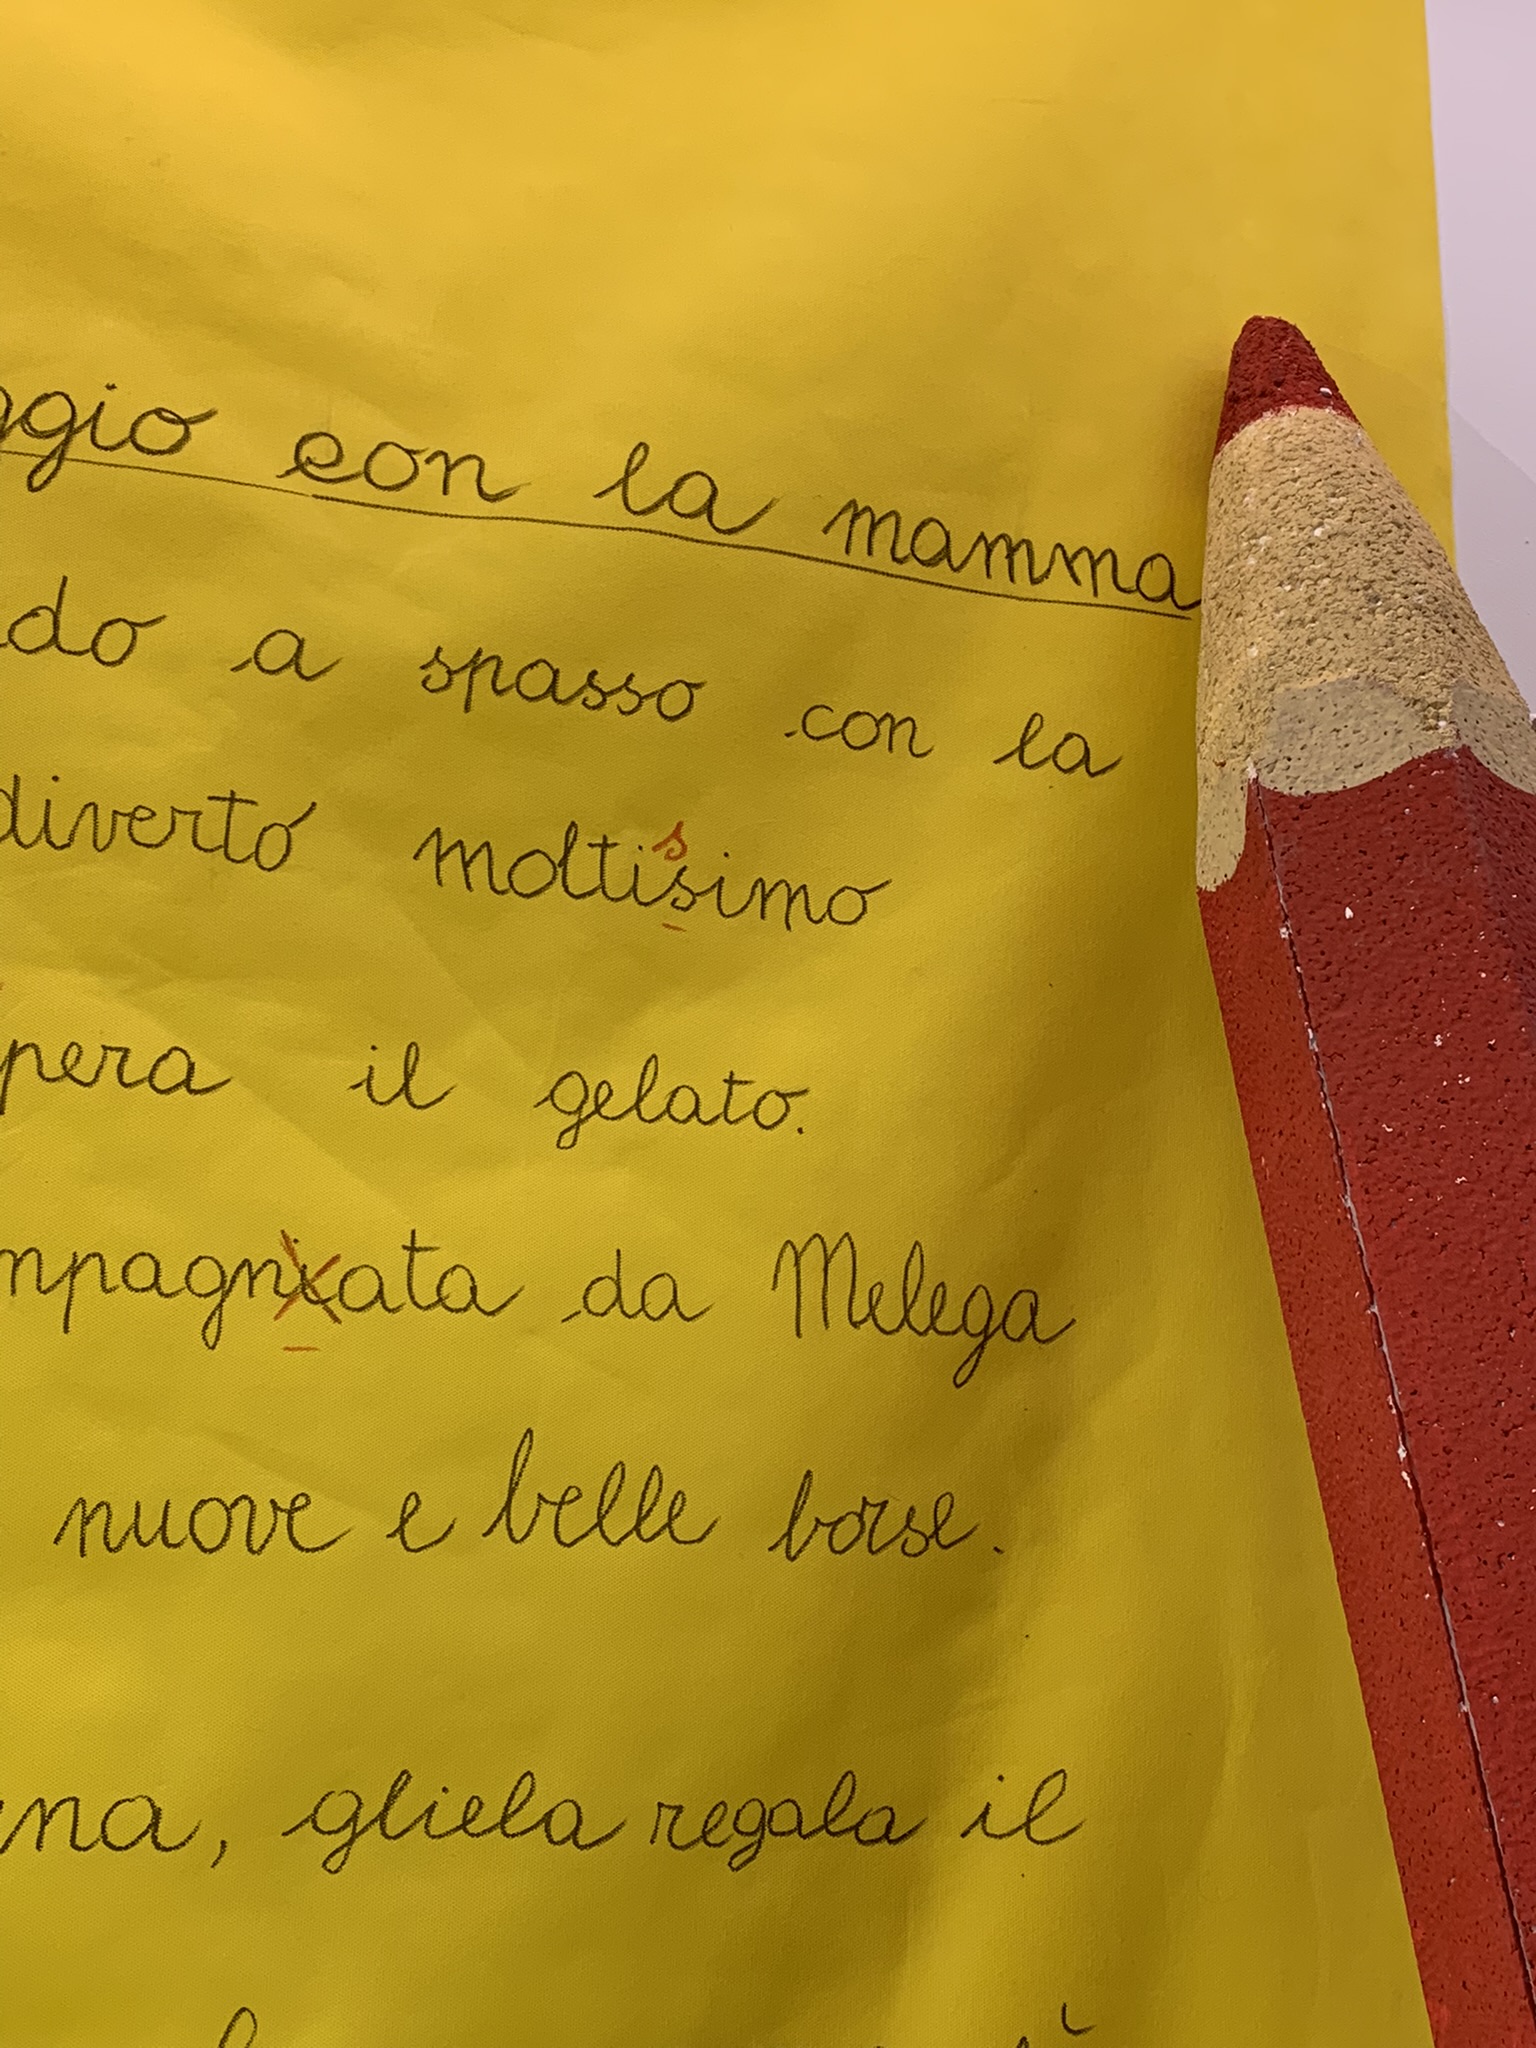 ggio con la mamma
do a spasso con la
diverto moltisimo
s
pera il gelato.
mpagniata da Melega
nuove e belle borse.
na, gliela regala il